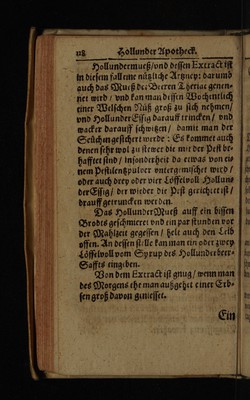 118 Hollunder Apotheck.
Hollundermueß/vnd dessen Extract ist
in diesem fall eine nützliche Artzney: darumb
auch das Mueß der Bawren Theriac genen-
net wird / vnd kan man dessen Wochentlich
einer Welschen Nüß groß zu sich nehmen/
vnd HollunderEssig darauff trincken / vnd
wacker darauff schwitzen / damit man der
Seuch gesichert werde: Es kommet auch
denen sehr wol zu stewer die mit der Pest be-
hafftet sind / insonderheit da etwas von ei-
nem Pestilentzpulver untergemischet wird /
oder auch drey oder vier Löffelvoll Hollun-
derEssig / der wieder die Pest gerichtet ist /
drauff getruncken werden.
Das HollunderMueß auff ein bissen
Brodts geschmieret vnd ein par stunden vor
der Mahlzeit gegessen / helt auch den Leib
offen. An dessen stelle kan man ein oder zwey
Löffelvoll vom Syrup des Hollunderbeer-
Saffts eingeben.
Von dem Extract ist gnug / wenn man
des Morgens ehe man außgehet einer Erb-
sen groß davon geniesset.
Ein